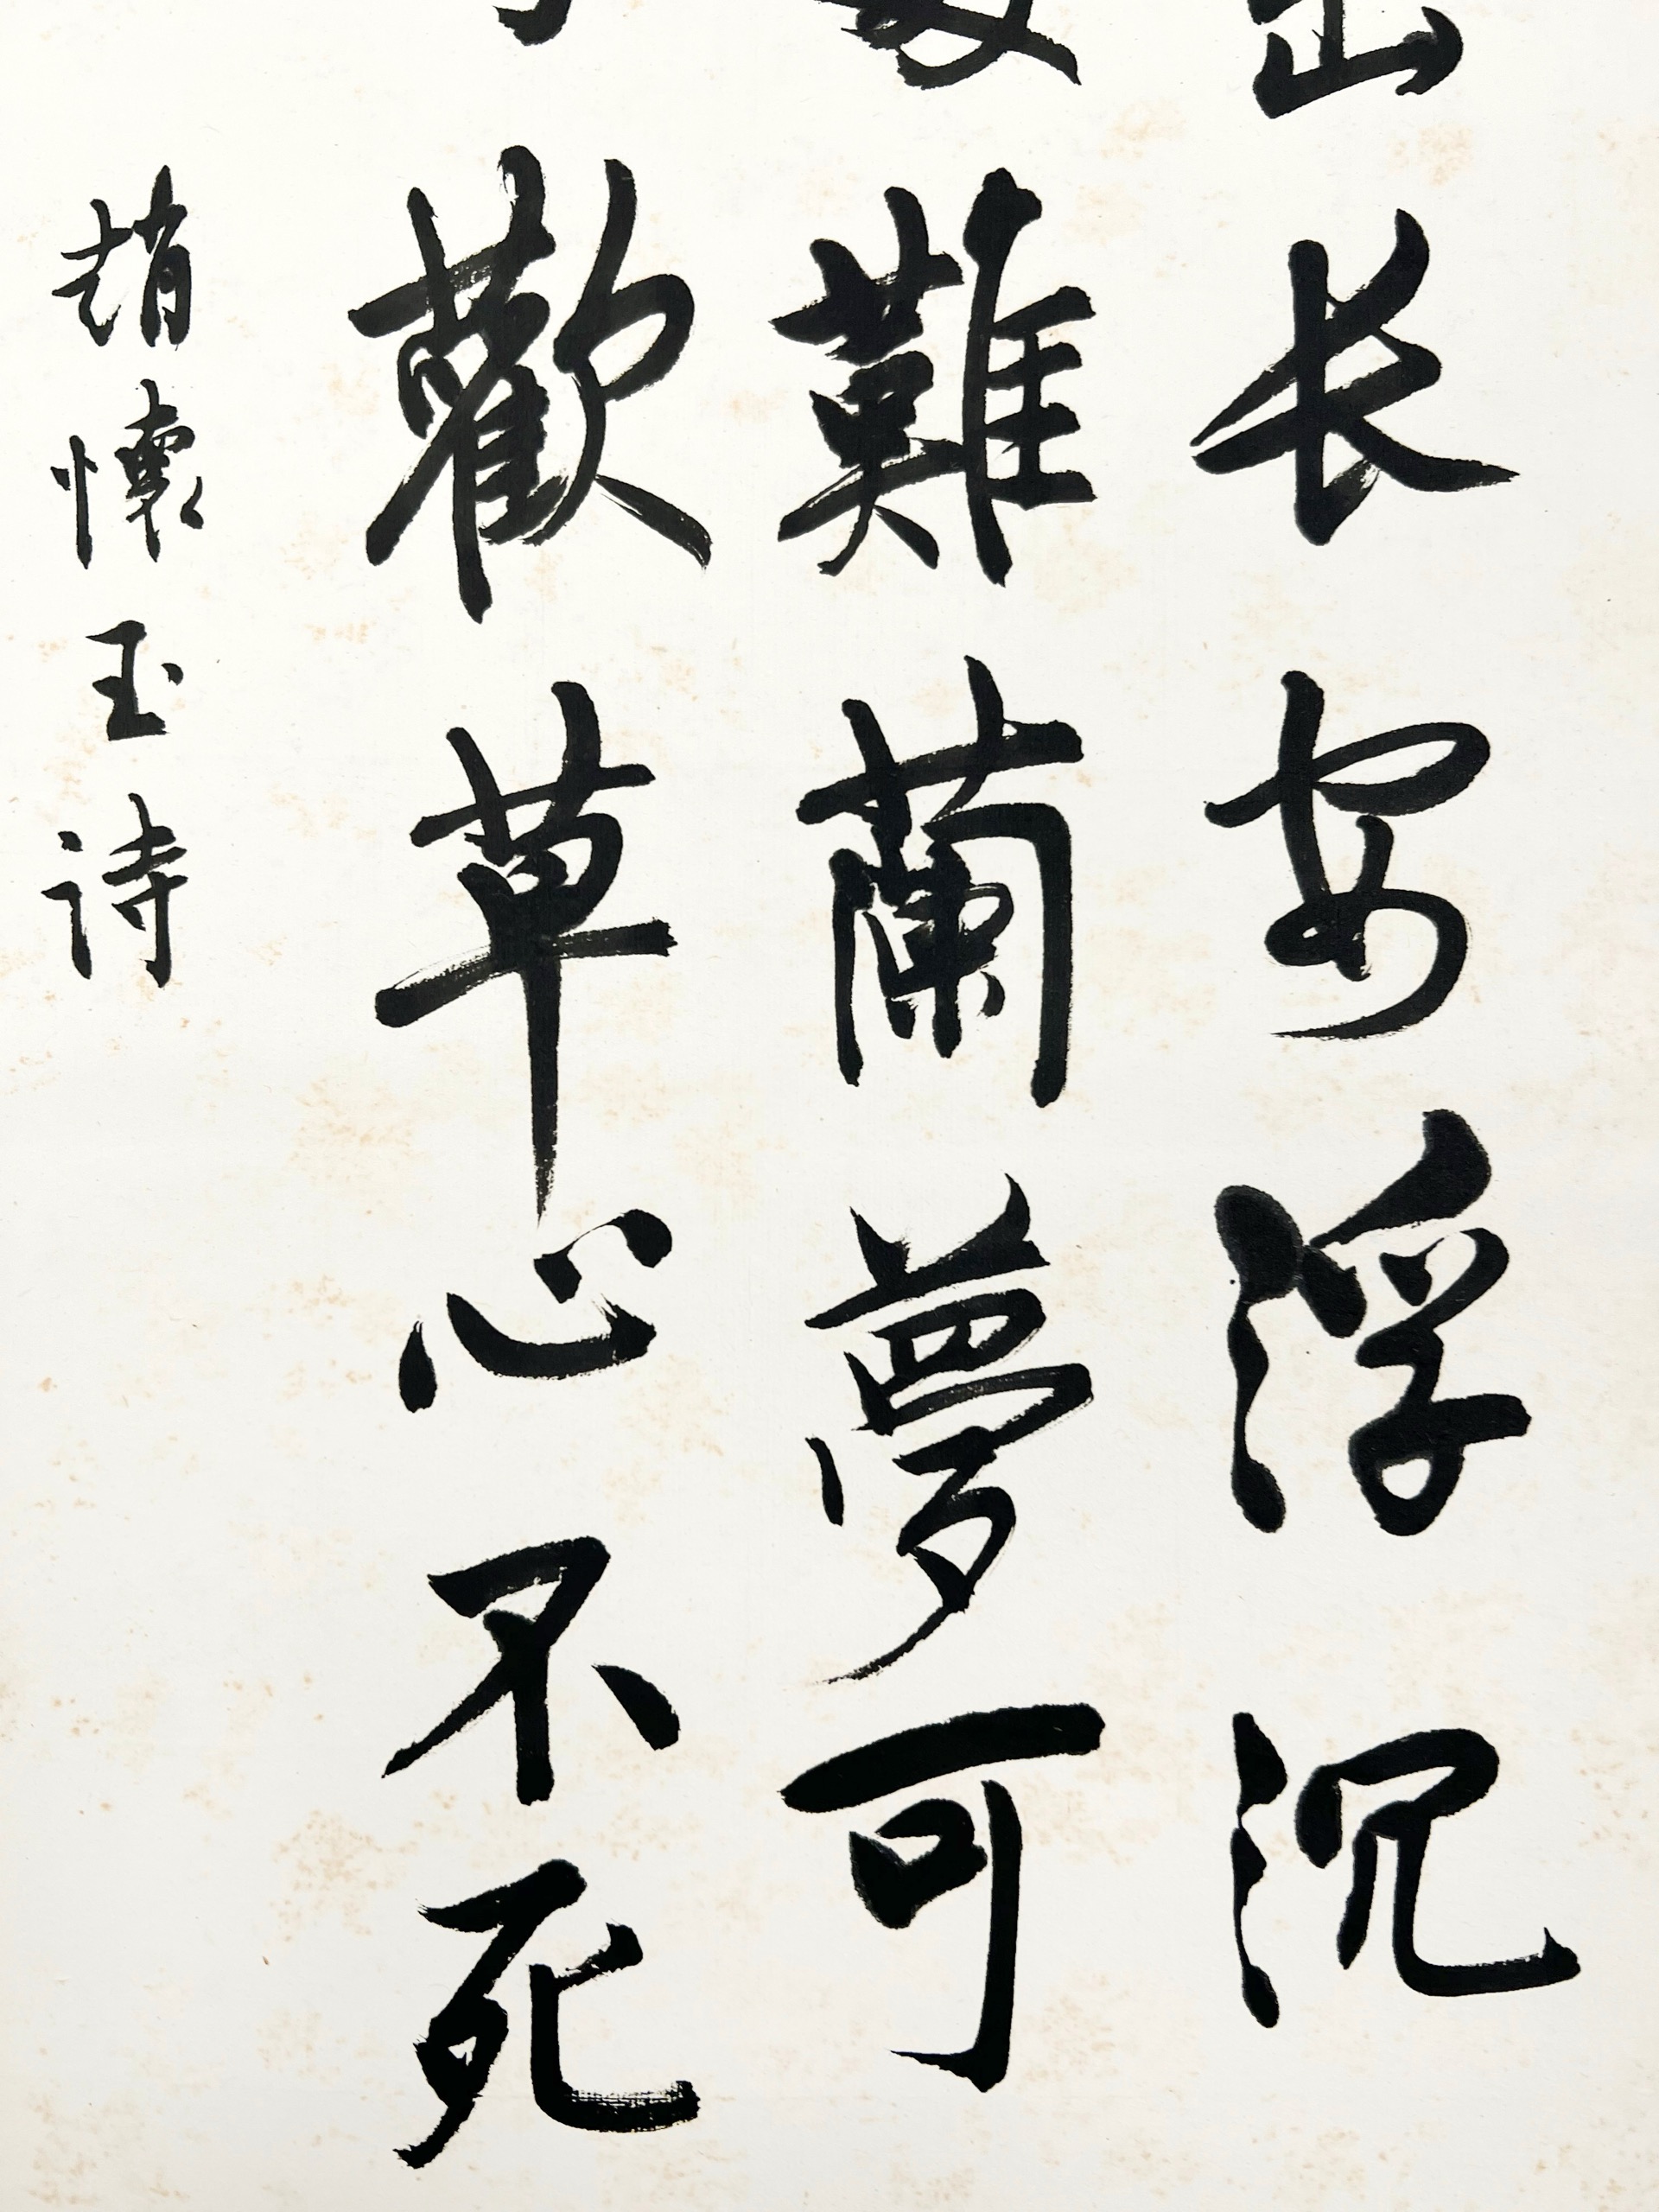 长安浮沉
難蘭夢可
歡草心不死
趙懷玉詩